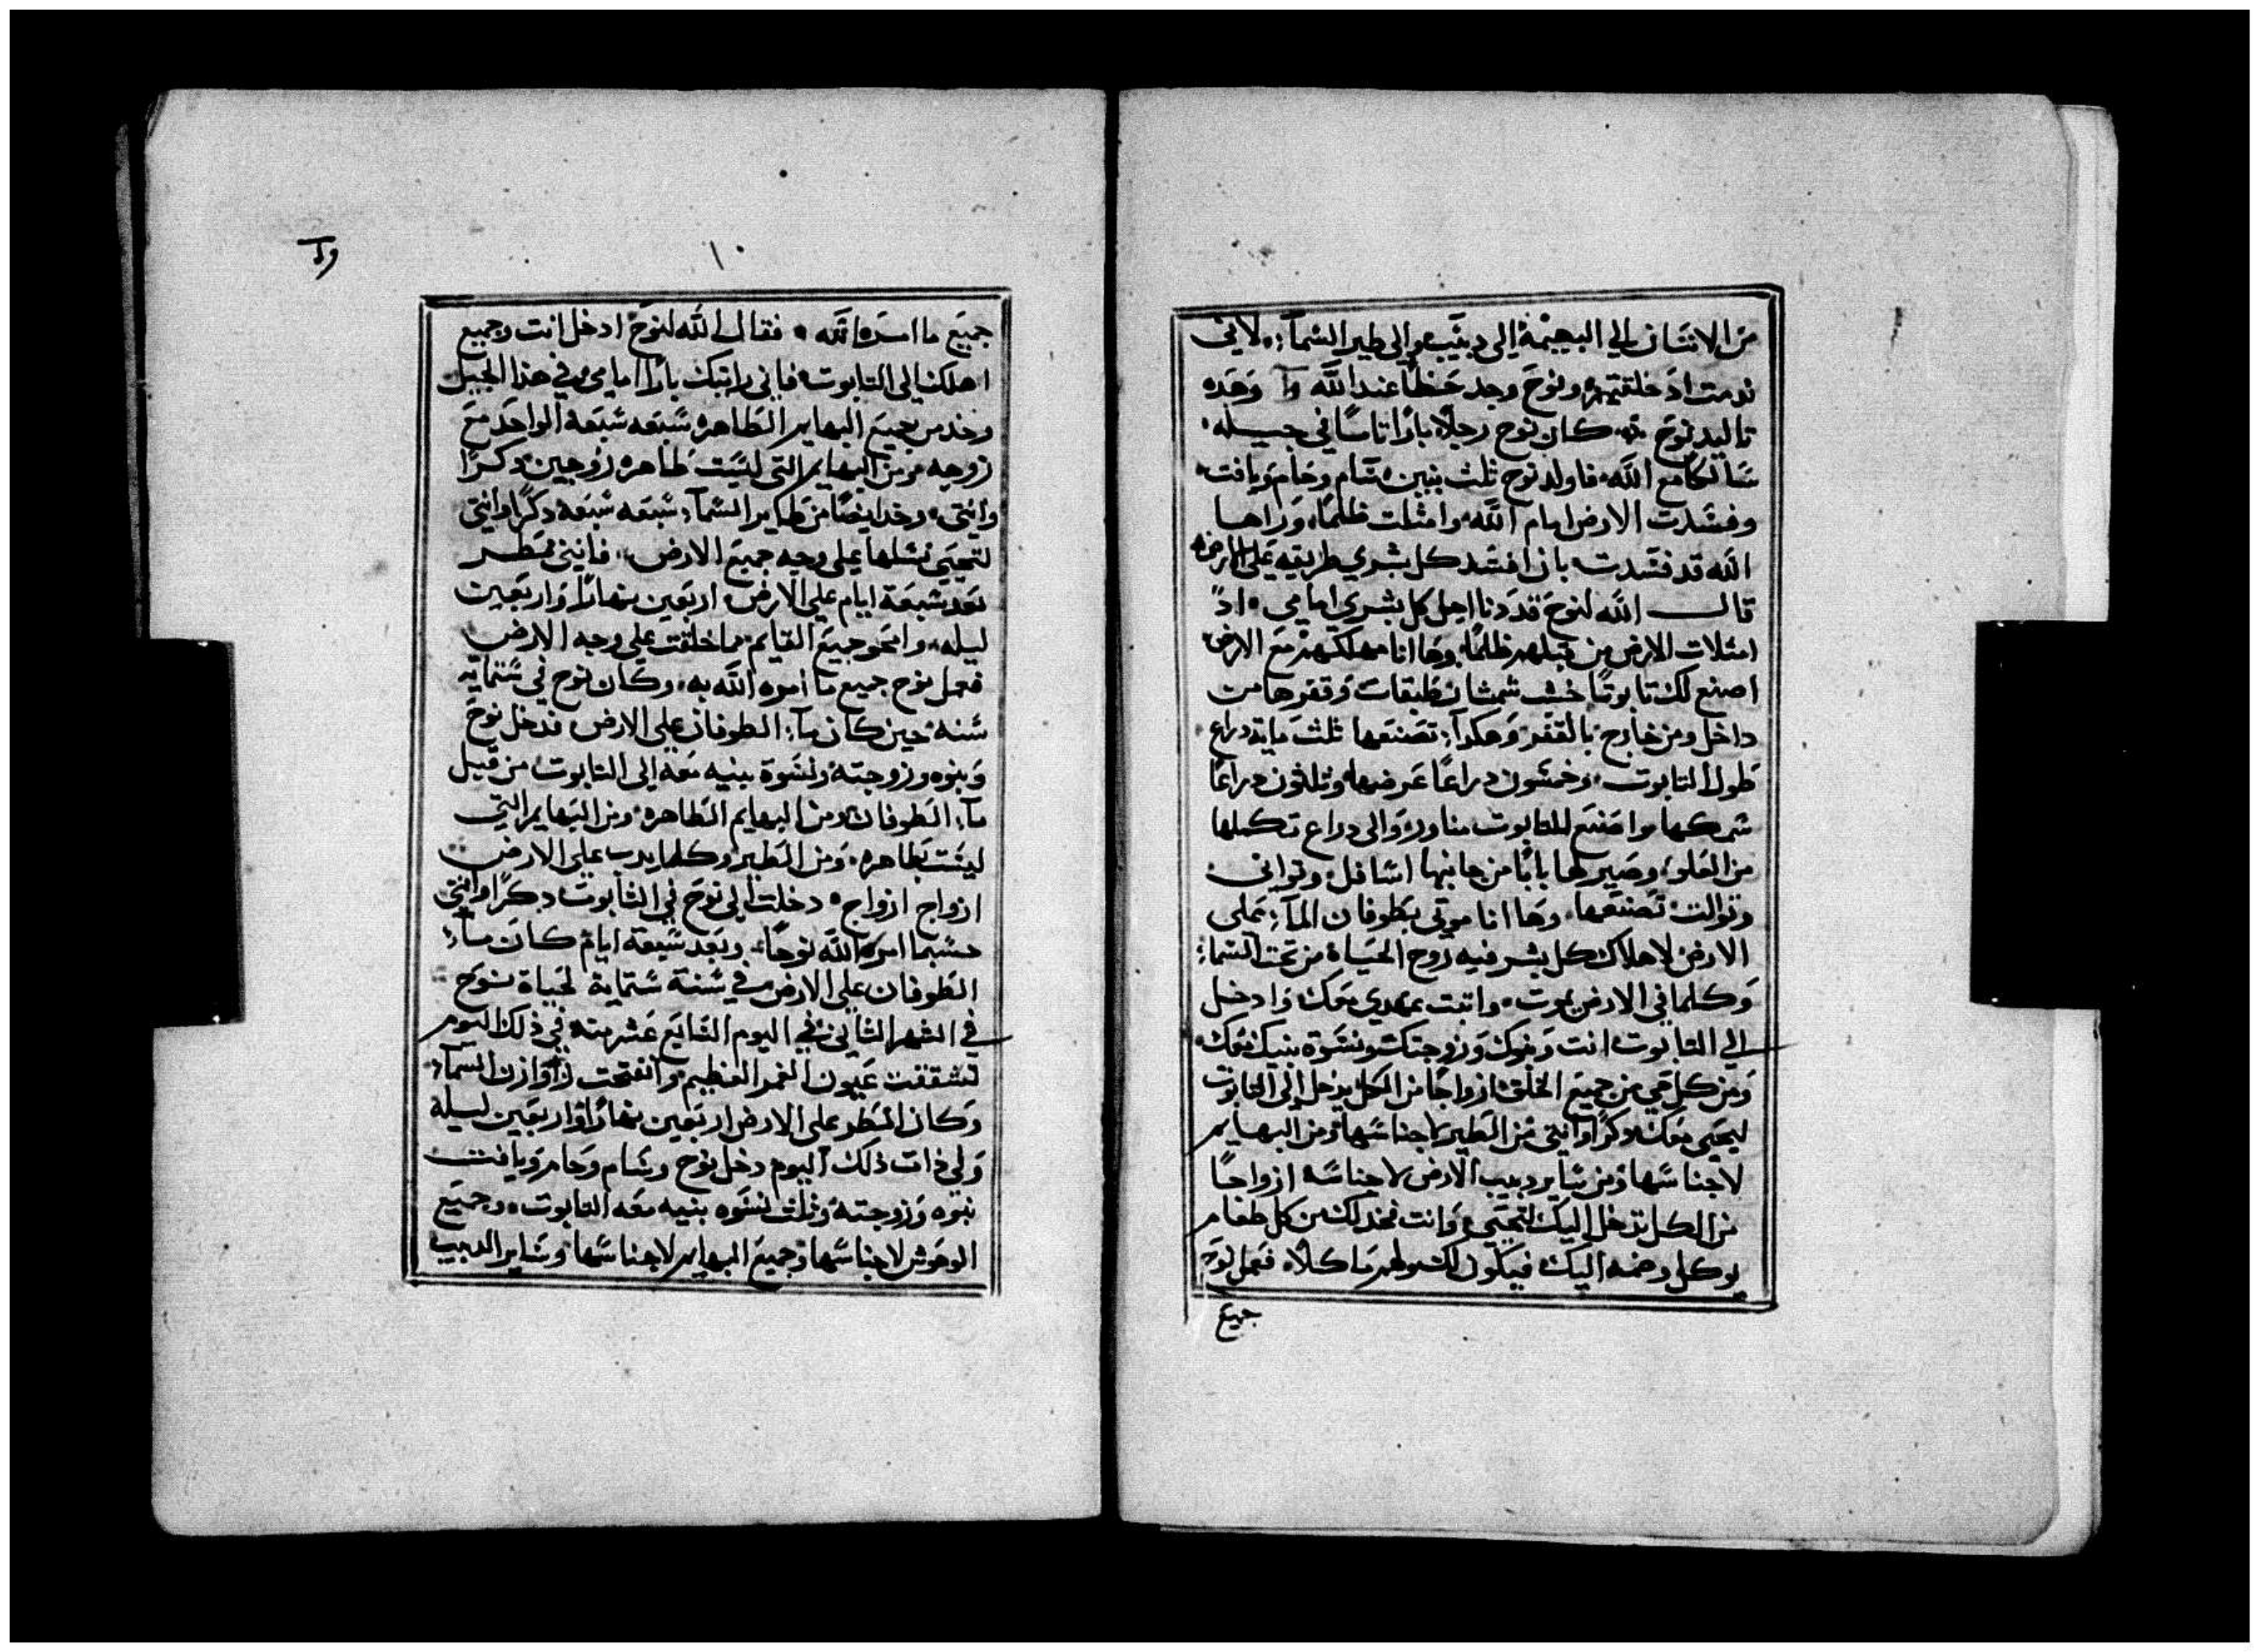 من الانسان الي البهيمة الى دبيب والى طير السمآء لاني
ندمت اذ خلقتهم ونوح وجد حظًا عند الله وآ وهده
تاليد نوح كان نوح رجلًا بارًا تامًا في جيله
سالكًا مع الله فاولد نوح ثلث بنين سام وحام ويافت
وفسدت الارض امام الله وامتلت ظلمًا وراها
الله قد فسدت بان افسد كل بشري طريقه على الارض
قال الله لنوح قد دنا اجل كل بشري امامي اذ
امتلات الارض من قبلهم ظلمًا وها انا مهلكهم مع الارض
اصنع لك تابوتًا خشب شمشار طبقات وقفرها من
داخل ومن خارج بالقفر وهكذا تصنعها ثلث ماية دراع
طول التابوت وخمسون دراعًا عرضها وثلثون دراعًا
سمكها واصنع للتابوت مناور والى دراع تكملها
من العلو وصير لها بابًا من جانبها اسافل وتواني
وتوالت تصنعها وها انا موتي بطوفان المآء على
الارض لاهلاك كل بشر فيه روح الحياة من تحت السمآء
وكلما في الارض يموت واتبت عهدي معك وادخل
الي التابوت انت وبنوك وزوجتك ونسوة بنيك معك
ومن كل حي من جميع الخلق ازواجًا من الكل يدخل الى التابوت
ليحيي معك دكرًا وانتى من الطير لاجناسها ومن البهايم
لاجناسها ومن ساير دبيب الارض لاجناسه ازواجًا
من الكل تدخل اليك لتحيي وانت فخد لك من كل طعام
يوكل وضمه اليك فيكون لك ولهم ماكلًا فعمل نوح
جميع
١٠
جميع ما امره الله فقال الله لنوح ادخل انت وجميع
اهلك الى التابوت فاني رايتك بارًا امامي في هذا الجيل
وخد من جميع البهايم الطاهره سبعه سبعه الواحد مع
زوجه ومن البهايم التي ليست طاهره زوجين دكرًا
وانتى وخد ايضًا من طاير السمآء سبعه سبعه دكرًا وانتى
لتحيي نسلها على وجه جميع الارض فانني ممطر
بعد سبعة ايام علي الارض اربعين نهارًا واربعين
ليله وامحو جميع القايم مما خلقت على وجه الارض
فعمل نوح جميع ما امره الله به وكان نوح في ستماية
سنه حين كان مآء الطوفان على الارض فدخل نوح
وبنوه وزوجته ونسوة بنيه معه الى التابوت من قبل
مآء الطوفان ومن البهايم الطاهره ومن البهايم التي
ليست بطاهره ومن الطير وكلما يدب على الارض
ازواج ازواج دخلت الى نوح في التابوت دكرًا وانتى
حسبما امر الله نوحًا وبعد سبعة ايام كان مآء
الطوفان على الارض في سنة ستماية لحياة نوح
في الشهر الثاني في اليوم السابع عشر منه في ذلك اليوم
تشققت عيون الغمر العظيم وانفتحت روازن السمآء
وكان المطر على الارض اربعين نهارًا واربعين ليلة
وفي ذات ذلك اليوم دخل نوح وسام وحام ويافت
بنوه وزوجته وثلث نسوه بنيه معه التابوت وجميع
الوحوش لاجناسها وجميع البهايم لاجناسها وساير الدبيب